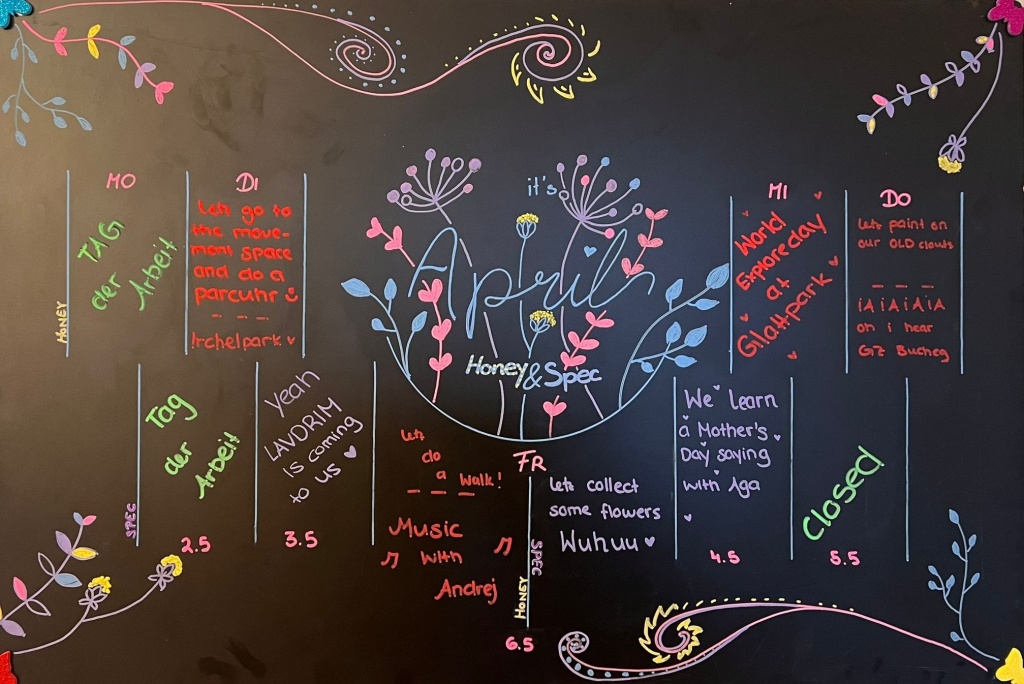 MO
TAG
der
Arbeit
HONEY
DI
Lets go to
the move-
ment space
and do a
parcuhr
Irchelpark
it's
April
Honey & Spec
MI
World
Exploreday
at
Glattpark
DO
Lets paint on
our OLD clouts
iA iA iA iA
oh i hear
GZ Bucheg
Tag
der
Arbeit
SPEC
2.5
Yeah
LAVDRIM
is coming
to us
3.5
Lets
do
a walk!
Music
with
Andrej
FR
lets collect
some flowers
Wuhuu
SPEC
HONEY
6.5
We learn
a Mother's
Day saying
with Aga
4.5
Closed
5.5